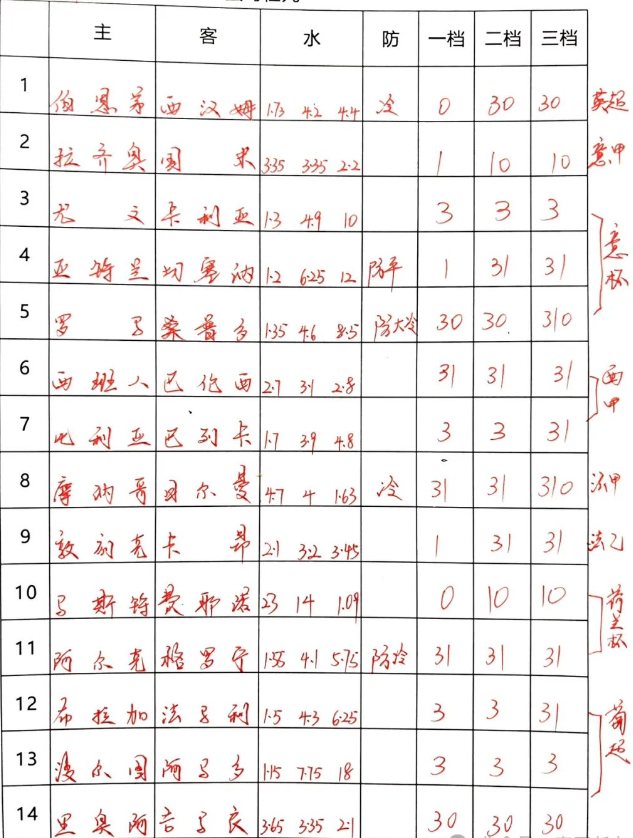 主 客 水 防 一档 二档 三档
1 伯恩第 西汉姆 1·73 4·2 4·4 冷 0 30 30 英超
2 拉齐奥 国米 3·35 3·35 2·2 1 10 10 意甲
3 尤文 卡利亚 1·3 4·9 10 3 3 3
4 亚特兰 切塞纳 1·2 6·25 12 防平 1 31 31 意杯
5 罗马 桑普多 1·35 4·6 8·5 防大冷 30 30. 310
6 西班人 巴伦西 2·7 3·1 2·8 31 31 31 西甲
7 比利亚 巴列卡 1·7 3·9 4·8 3 3 31
8 摩纳哥 圣日尔曼 4·7 4 1·63 冷 31 31 310 法甲
9 敦刻克 卡昂 2·1 3·2 3·45 1 31 31 法乙
10 马斯特 费耶诺 23 14 1·09 0 10 10 荷兰杯
11 阿尔克 格罗宁 1·55 4·1 5·75 防冷 31 31 31
12 布拉加 法马利 1·5 4·3 6·25 3 3 31 葡超
13 波尔图 阿马多 1·15 7·75 18 3 3 3
14 里奥阿 吉马良 3·65 3·35 2·1 30 30 30